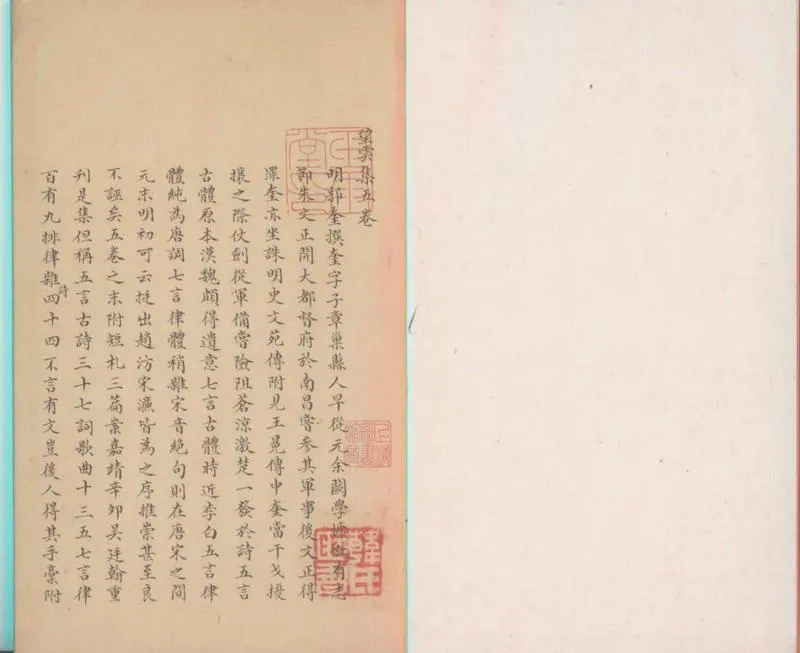 望雲集五卷
明郭奎撰奎字子章巢縣人早從元余闕學慷慨有志
節朱文正開大都督府於南昌嘗參其軍事後文正得
罪奎亦坐誅明史文苑傳附見王冕傳中奎當干戈擾
攘之際仗劍從軍備嘗險阻蒼涼激楚一發於詩五言
古體原本漢魏頗得遺意七言古體時近李白五言律
體純為唐調七言律體稍雜宋音絕句則在唐宋之間
元末明初可云挺出趙汸宋濂皆為之序推崇甚至良
不誣矣五卷之末附短札三篇案嘉靖辛卯吳廷翰重
刊是集但稱五言古詩三十七詞歌曲十三五七言律
百有九排律雜詩四十四不言有文豈後人得其手稾附
韓氏